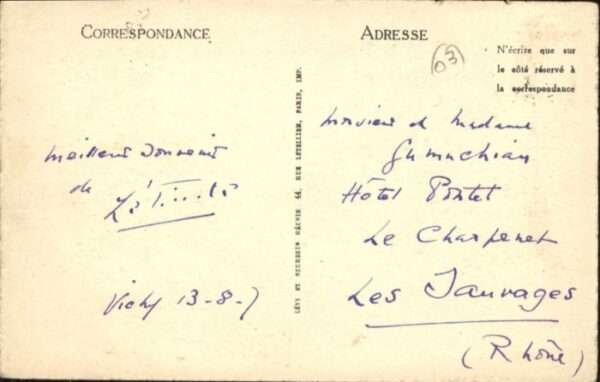 CORRESPONDANCE
ADRESSE
N'écrire que sur
le côté réservé à
la correspondance
03
LÉVY ET NEURDEIN RÉUNIS 44, RUE LETELLIER, PARIS, IMP.
Meilleurs Souvenirs
de
Vichy 13-8-7
Monsieur & Madame
Gumuchian
Hôtel Pontet
Le Charpenet
Les Sauvages
(Rhône)